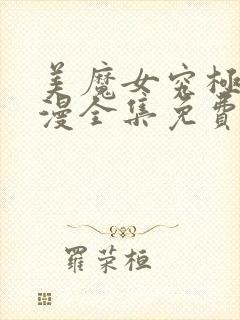 美魔女究极
漫全集免费
羅荣桓